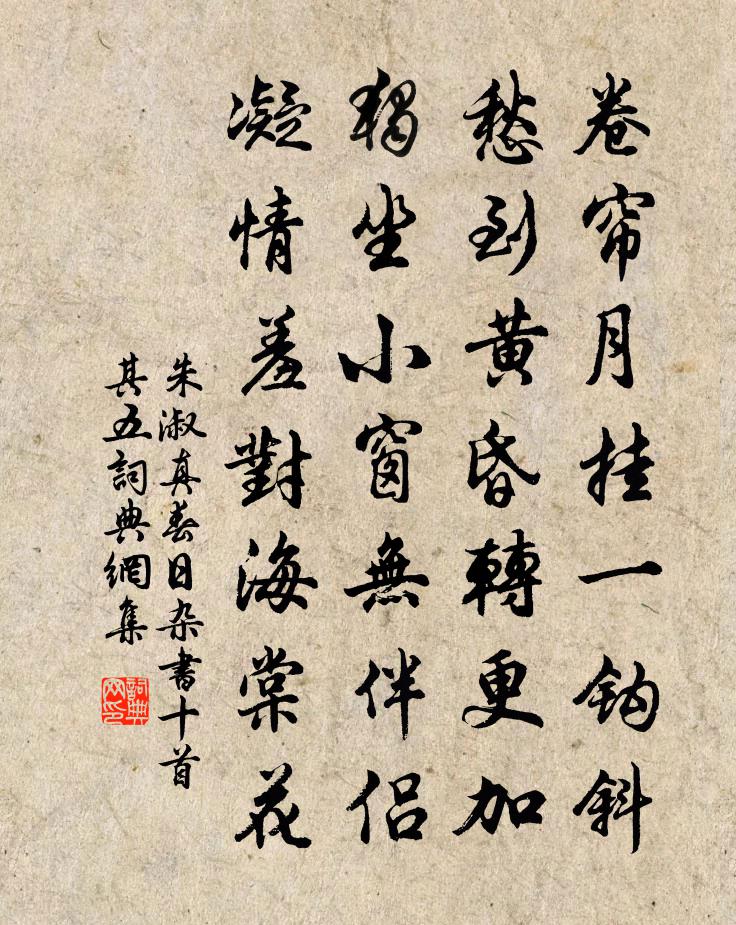 卷帘月挂一钩斜
愁到黄昏轉更加
獨坐小窗無伴侣
凝情羞對海棠花
朱淑真春日杂書十首
其五詞典網集
詞典网印